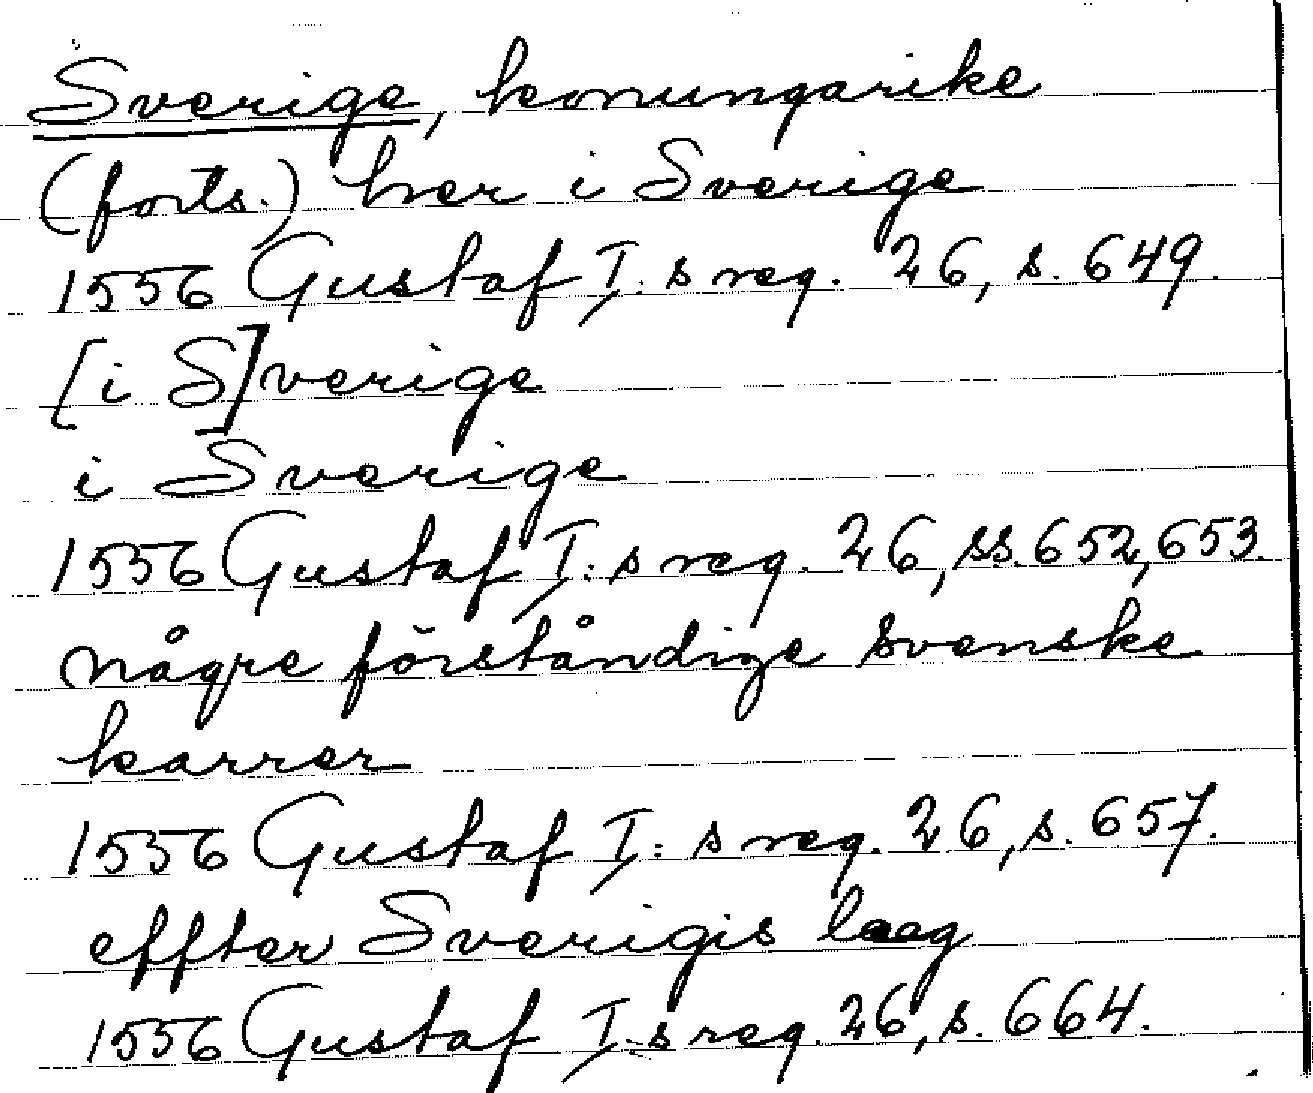 Sverige, konungarike
(forts.) her i Sverige
1556 Gustaf I:s reg. 26, s. 649.
[i S]verige
i Sverige
1556 Gustaf I:s reg. 26, ss. 652, 653.
någre förståndige svenske
karrer
1556 Gustaf I:s reg. 26, s. 657.
effter Sverigis laag
1556 Gustaf I:s reg. 26, s. 664.